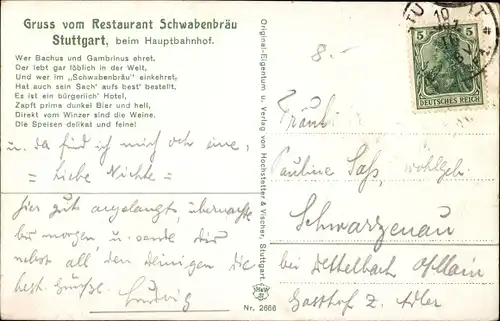 Gruss vom Restaurant Schwabenbräu
Stuttgart, beim Hauptbahnhof.
Wer Bachus und Gambrinus ehret,
Der lebt gar löblich in der Welt,
Und wer im „Schwabenbräu" einkehret,
Hat auch sein Sach' aufs best' bestellt.
Es ist ein bürgerlich' Hotel,
Zapft prima dunkel Bier und hell,
Direkt vom Winzer sind die Weine.
Die Speisen delikat und feine!
u. da find ich mich eine,
= Liebe Nichte =
Hier gut angelangt, übernachte
bis morgen, u. sende Dir
nebst all den Deinigen die
best. Grüsse. Ludwig
Original-Eigentum u. Verlag von Hochstetter & Vischer, Stuttgart.
Nr. 2666
8.-
5 5
DEUTSCHES REICH
Fräul.
Pauline Sass, wohlgeb.
Schwarzenau
bei Dettelbach a/Main
Gasthof z. Adler